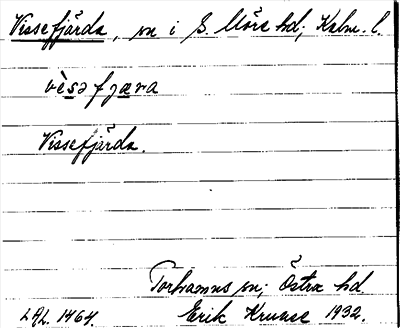 Vissefjärda, sn i S. Möre hd; Kalm. l.
vèsəfjæra
Vissefjärda.
Torhamns sn; Östra hd
LAL. 1464. Erik Kruuse 1932.